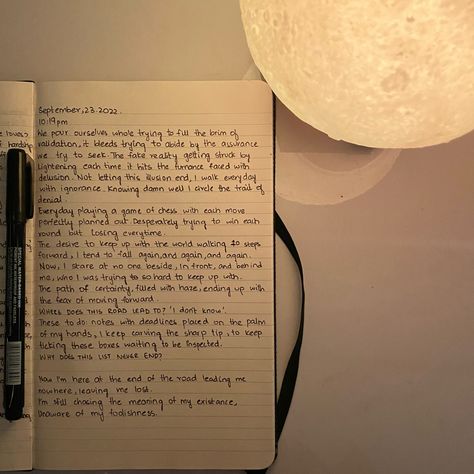 September, 23. 2022.
10:19pm
We pour ourselves whole trying to fill the brim of
validation, it bleeds trying to abide by the assurance
we try to seek. The fake reality getting struck by
lightening each time it hits the furrance faced with
delusion. Not letting this illusion end, I walk everyday
with ignorance. Knowing damn well I circle the trail of
denial.
Everyday playing a game of chess with each move
perfectly planned out. Desperately trying to win each
round but losing everytime.
The desire to keep up with the world walking 10 steps
forward, I tend to fall again, and again, and again.
Now, I stare at no one beside, in front, and behind
me, who I was trying so hard to keep up with.
The path of certainty, filled with haze, ending up with
the fear of moving forward.
WHERE DOES THIS ROAD LEAD TO? 'I don't know'.
These to do notes with deadlines placed on the palm
of my hands, I keep carving the sharp tip, to keep
ticking these boxes waiting to be inspected.
WHY DOES THIS LIST NEVER END?
Now I'm here at the end of the road leading me
nowhere, leaving me lost.
I'm still chasing the meaning of my existance,
Unaware of my foolishness.